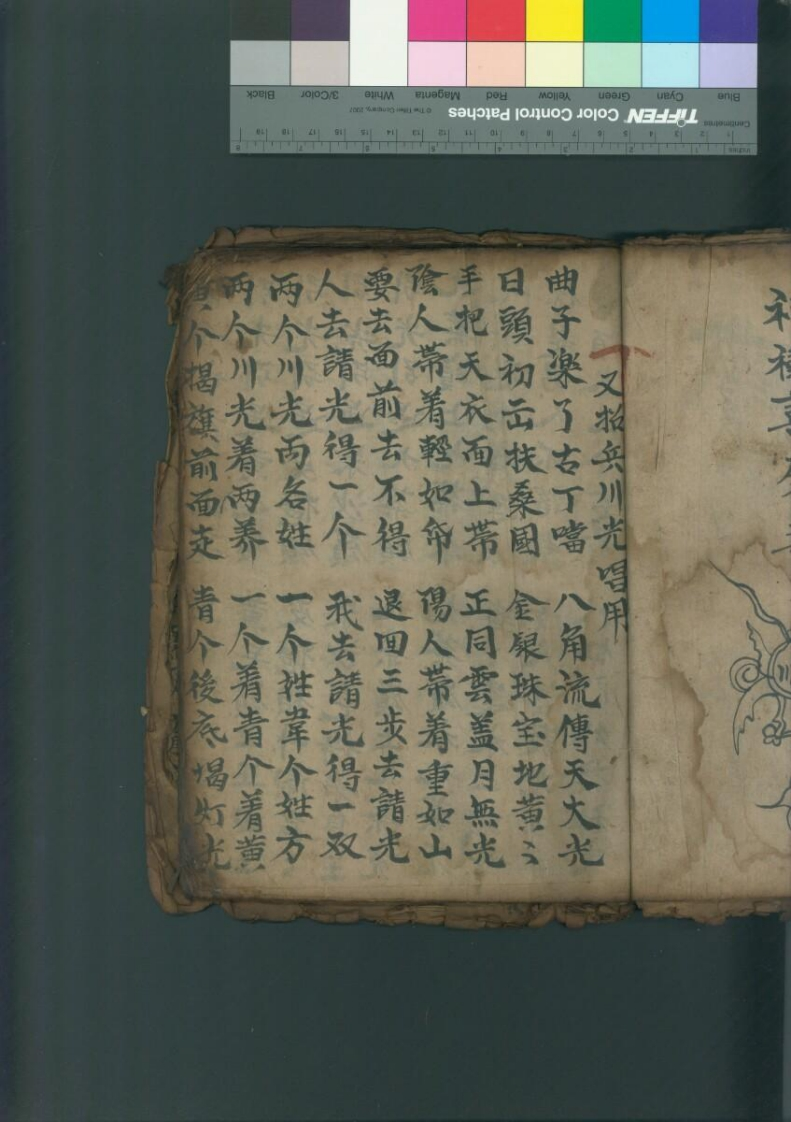 又招兵川光唱用
曲子楽了古丁噹 八角流傳天大光
日頭初出扶桑國 金銀珠宝地黄〻
手把天衣面上帯 正同雲盖月無光
陰人帯着輕如帋 陽人帯着重如山
要去面前去不得 退回三步去請光
人去請光得一个 我去請光得一双
两个川光两各姓 一个姓韋个姓方
两个川光着两养 一个着青个着黄
黄个揭旗前面走 青个後底揭灯光
Blue
Cyan
Green
Yellow
Red
Magenta
White
3/Color
Black
TIFFEN Color Control Patches
© The Tiffen Company, 2007
Centimetres
1 2 3 4 5 6 7 8 9 10 11 12 13 14 15 16 17 18 19
Inches
1 2 3 4 5 6 7 8